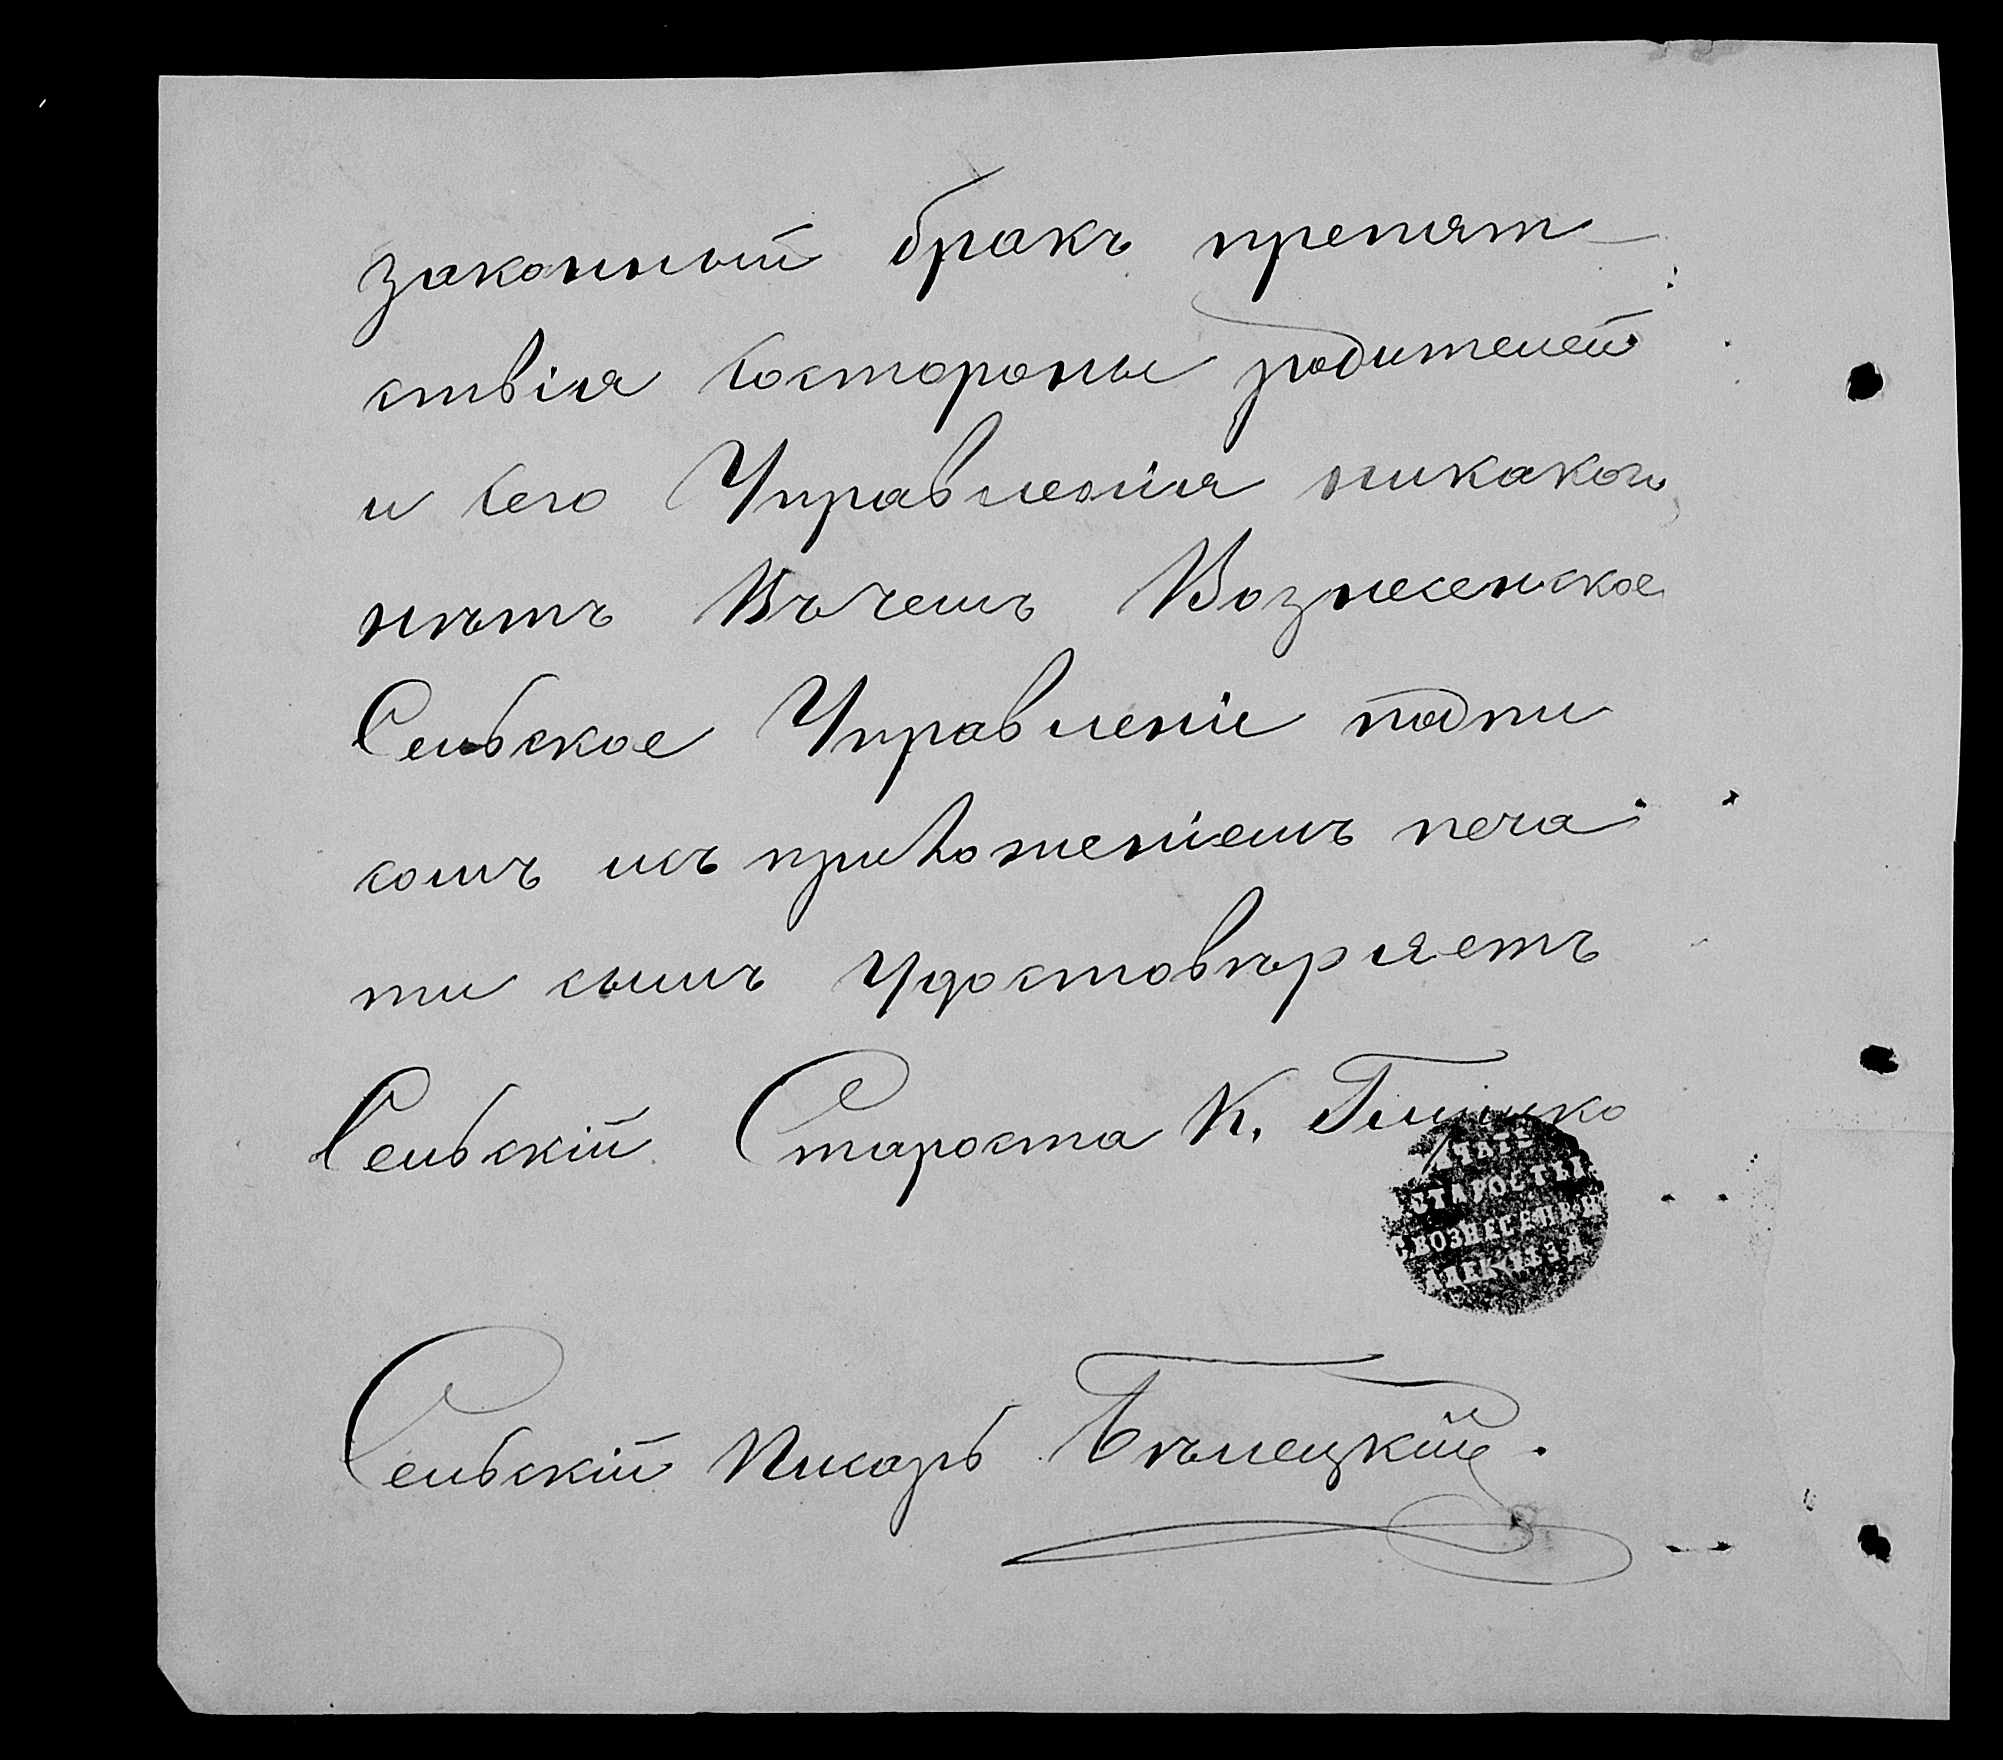 законный бракъ препят-
ствія состороны родителей
и сего Управленія никакого
нѣтъ Въчемъ Вознесенское
Сельское Управленіе подпи
сомъ исъ приложеніемъ печа
ти симъ Удостовѣряетъ
Сельскій Староста К.
ПЕЧАТЬ
СТАРОСТЫ
С ВОЗНЕСЕНСК
АЛЕК УѢЗД
Сельскій Писарь Бѣлецкій.